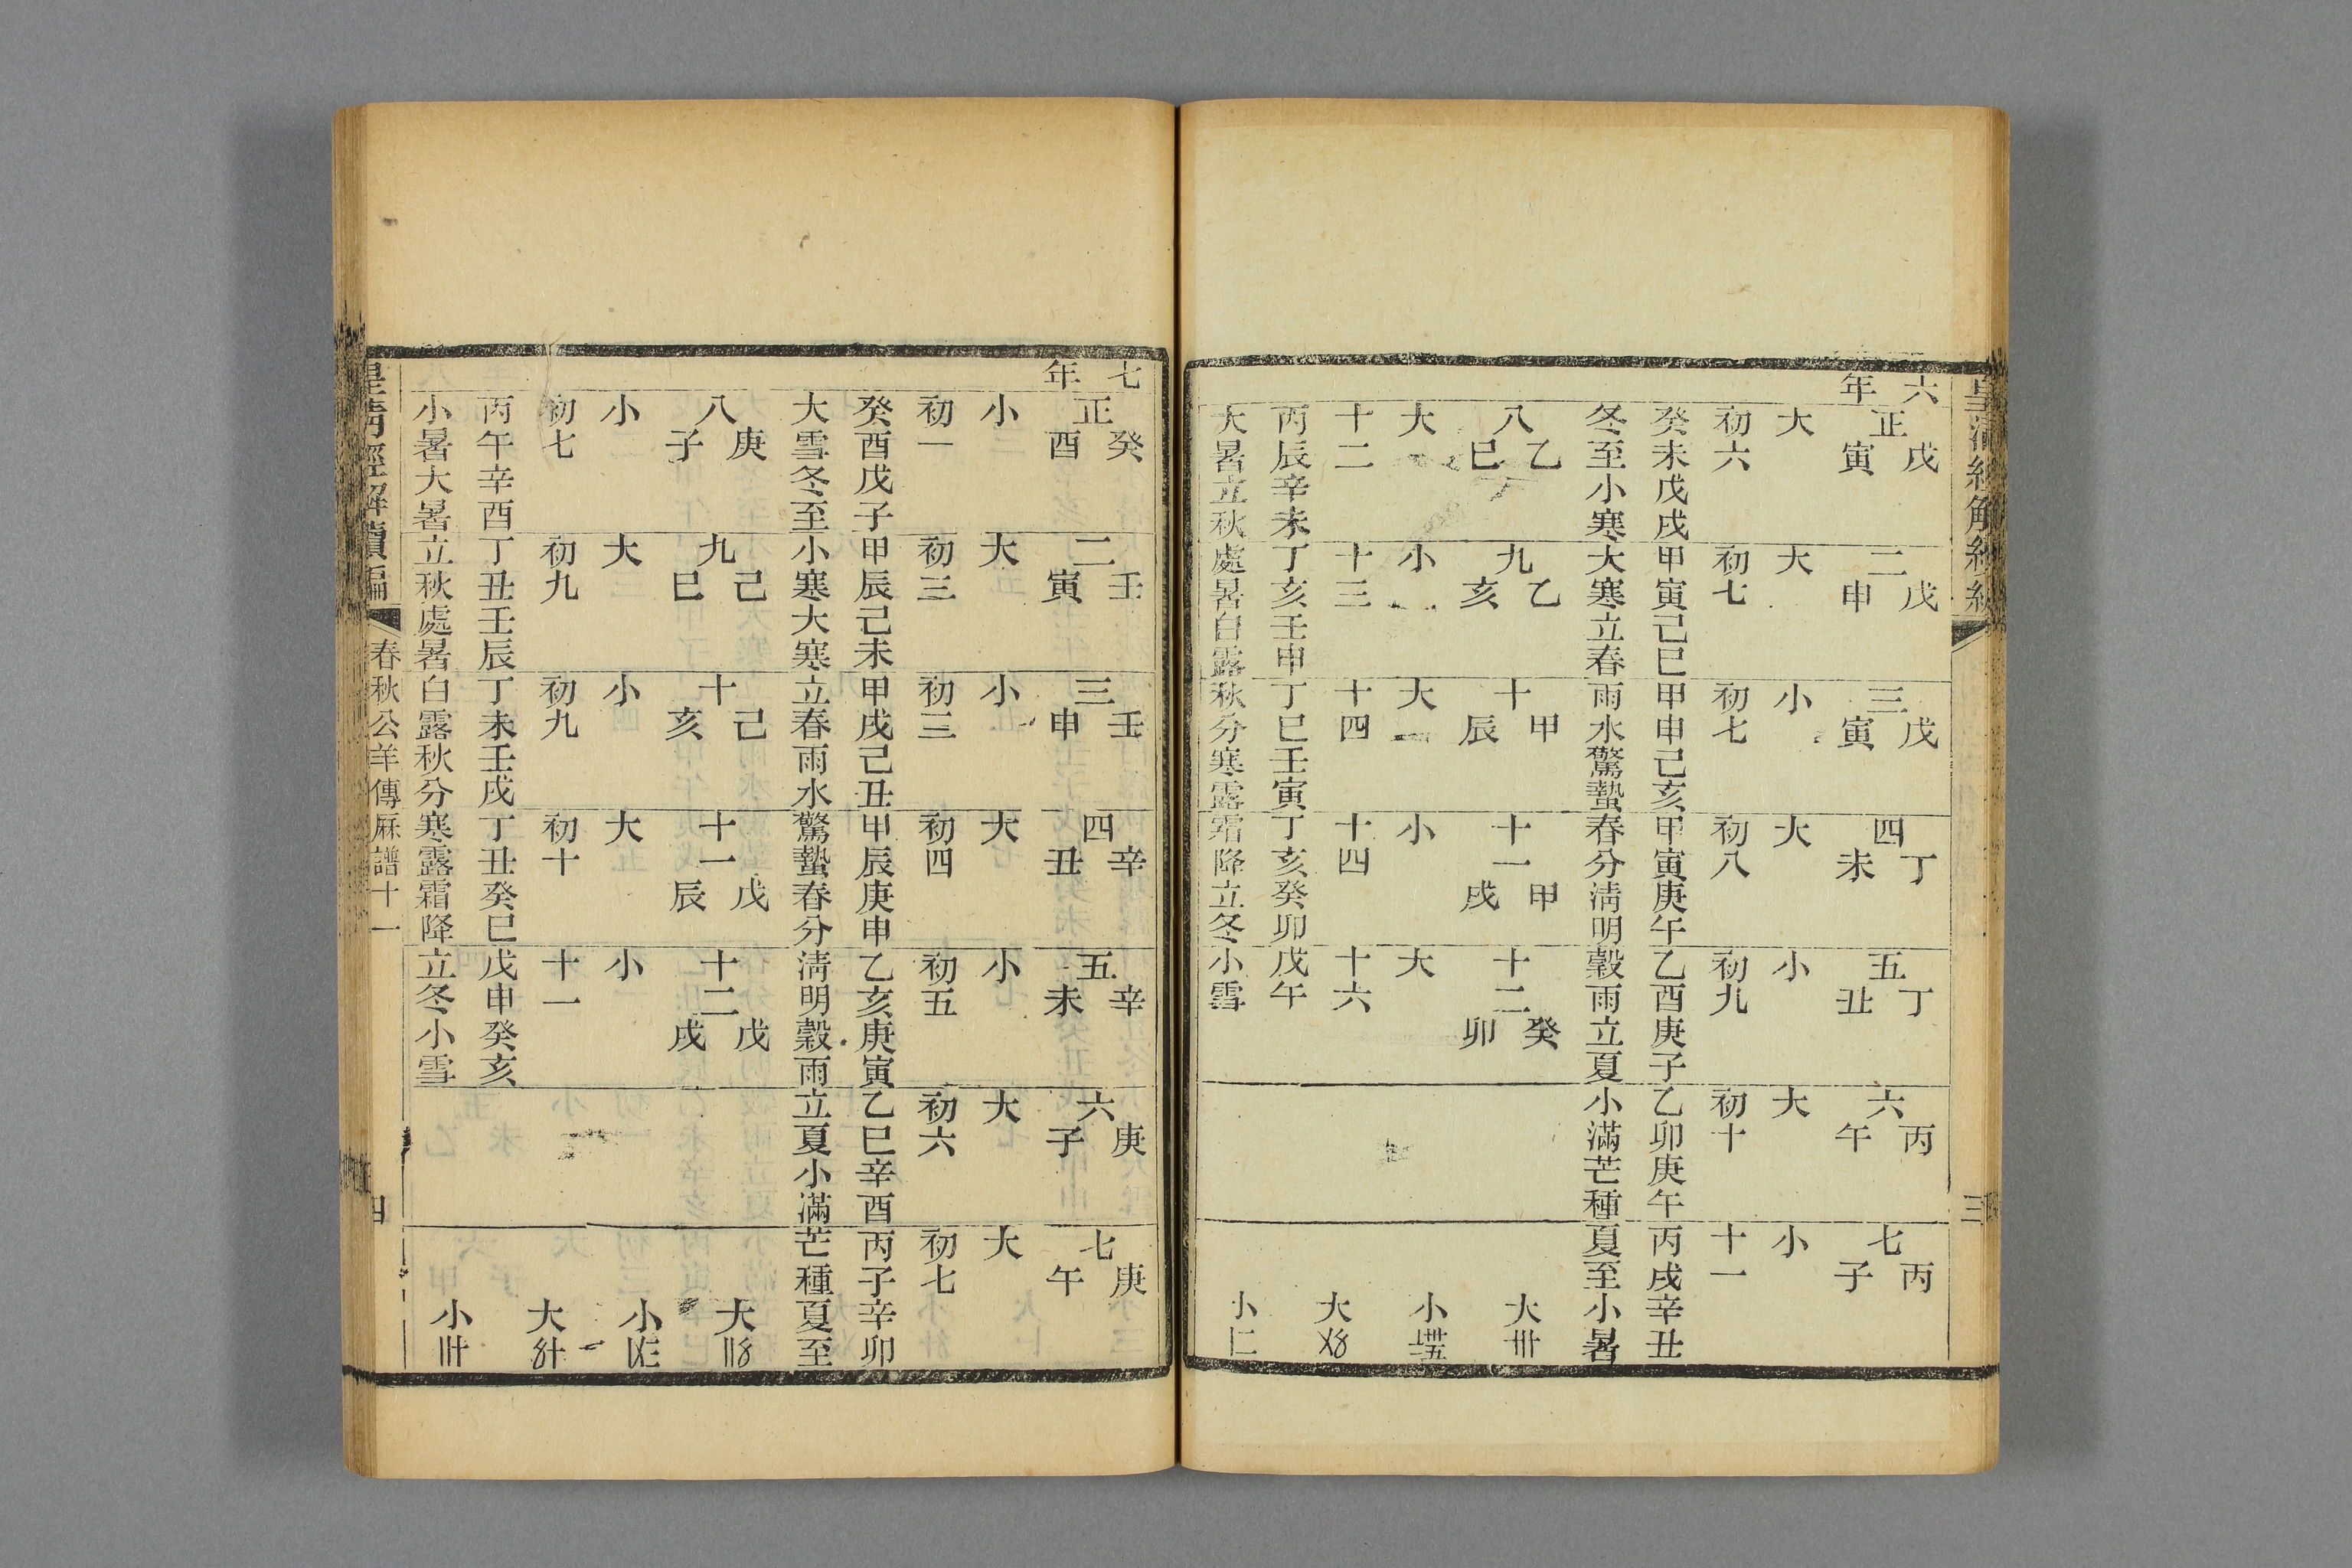 六年
正戊寅 二戊申 三戊寅 四丁未 五丁丑 六丙午 七丙子
大 大 小 大 小 大 小
初六 初七 初七 初八 初九 初十 十一
癸未戊戌 甲寅己巳 甲申己亥 甲寅庚午 乙酉庚子 乙卯庚午 丙戌辛丑
冬至小寒大寒立春雨水驚蟄春分清明穀雨立夏小滿芒種夏至小暑
八乙巳 九乙亥 十甲辰 十一甲戌 十二癸卯 大卌
大 小 大 小 大 小
十二 十三 十四 十四 十六 大〤〥
丙辰辛未 丁亥壬申 丁巳壬寅 丁亥癸卯 戊午
大暑立秋處暑白露秋分寒露霜降立冬小雪 小
三
七年
正癸酉 二壬寅 三壬申 四辛丑 五辛未 六庚子 七庚午
小 大 小 大 小 大 大
初一 初三 初三 初四 初五 初六 初七
癸酉戊子 甲辰己未 甲戌己丑 甲辰庚申 乙亥庚寅 乙巳辛酉 丙子辛卯
大雪冬至小寒大寒立春雨水驚蟄春分清明穀雨立夏小滿芒種夏至
八庚子 九己巳 十己亥 十一戊辰 十二戊戌 大〢〥
小 大 小 大 小 小
初七 初九 初九 初十 十一 大〥卄
丙午辛酉 丁丑壬辰 丁未壬戌 丁丑癸巳 戊申癸亥
小暑大暑立秋處暑白露秋分寒露霜降立冬小雪 小〢卄
皇清經解續編 春秋公羊傳厤譜十一 四